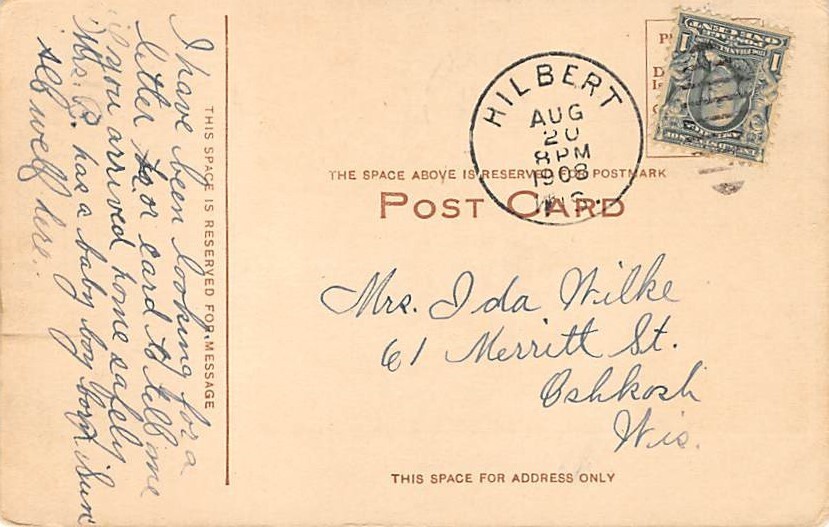 I have been looking for a
letter or card to tell me
if you arrived home safely
Mrs. B. has a baby boy born Sun
self well here.
THIS SPACE IS RESERVED FOR MESSAGE
HILBERT
AUG
20
8 PM
1908
WIS.
POSTAGE
ONE CENT
1
1
THE SPACE ABOVE IS RESERVED FOR POSTMARK
POST CARD
Mrs. Ida Wilke
61 Merritt St.
Oshkosh
Wis.
THIS SPACE FOR ADDRESS ONLY